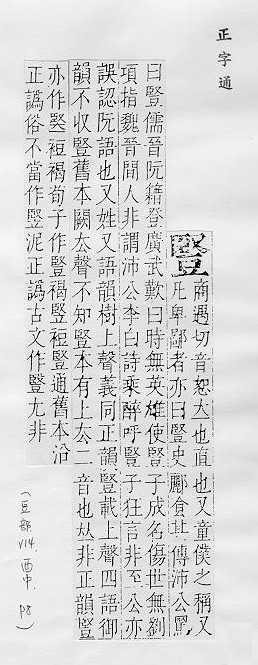 正字通
豎
商遇切音恕立也直也又童僕之稱又
凡卑鄙者亦曰豎史酈食其傳沛公罵
曰豎儒晉阮籍登廣武歎曰時無英雄使豎子成名傷世無劉
項指魏晉閒人非謂沛公李白詩乘醉呼豎子狂言非至公亦
誤認阮語也又姓又語韻樹上聲義同正韻豎載上聲四語御
韻不收豎舊本闕去聲不知豎本有上去二音也𠀤非正韻豎
亦作竪裋褐荀子作豎褐竪裋豎通舊本沿
正譌俗不當作竪泥正譌古文作豎尢非
(豆部 V14. 酉中. P8)